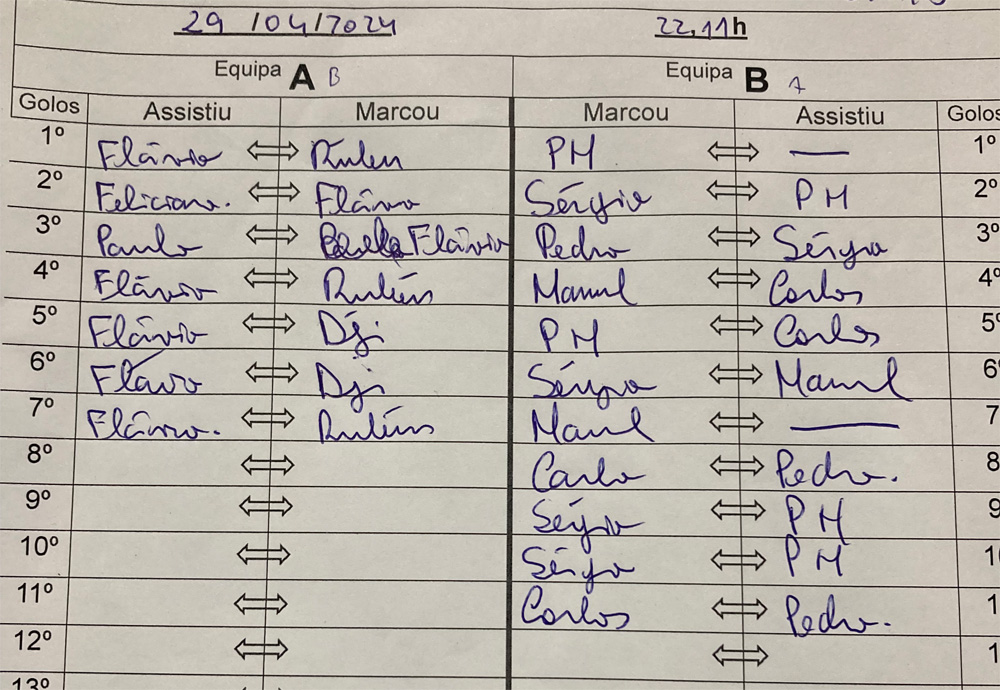 29 /04/2024 22,11h
Equipa A B Equipa B A
Golos Assistiu Marcou Marcou Assistiu Golos
1º Flávio Rúben PM — 1º
2º Feliciano. Flávio Sérgio PM 2º
3º Paulo Flávio Pedro Sérgio 3º
4º Flávio Rubén Manuel Carlos 4º
5º Flávio Dji PM Carlos 5º
6º Flávio Dji Sérgio Manuel 6º
7º Flávio. Rubén Manuel — 7
8º Carlos Pedro. 8
9º Sérgio PM 9
10º Sérgio PM 10
11º Carlos Pedro. 1
12º 1
13º